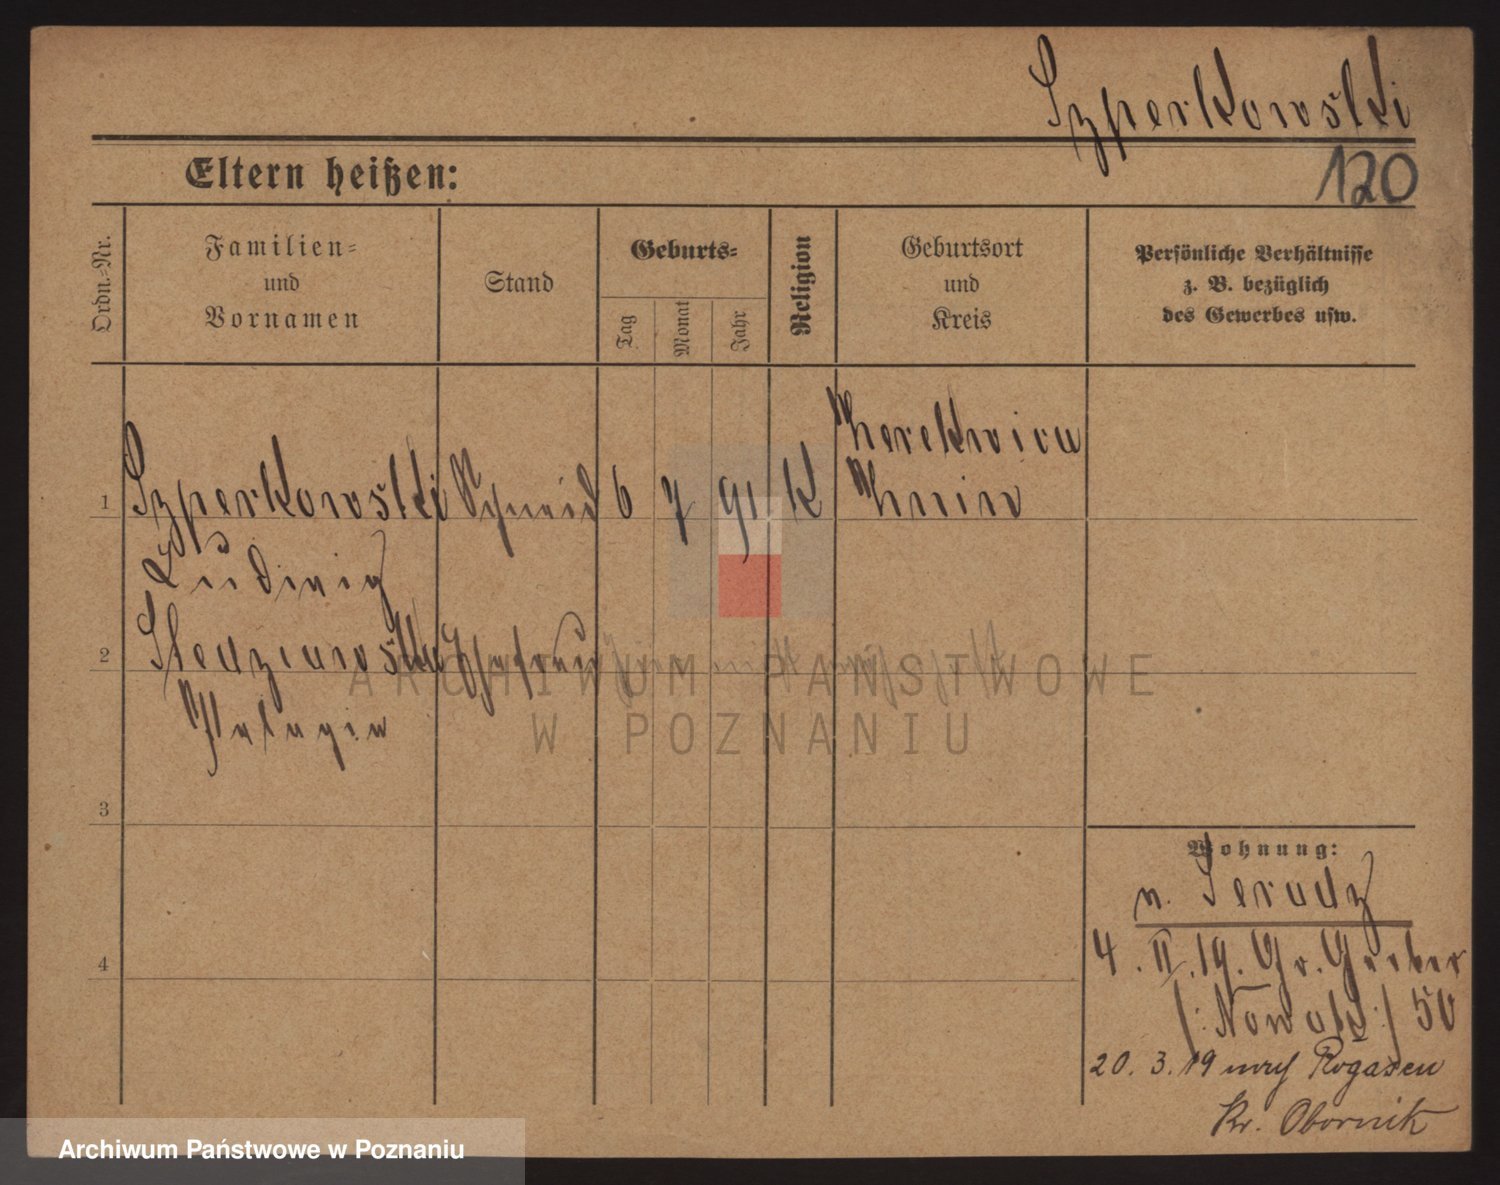 Szperkowski
120
Eltern heißen:
Ordn.-Nr.
Familien-
und
Vornamen
Stand
Geburts-
Tag
Monat
Jahr
Religion
Geburtsort
und
Kreis
Persönliche Verhältnisse
z. B. bezüglich
des Gewerbes usw.
1
Szperkowski
Schneid
6
7
91
K
Znin
Ludwig
2
Ehefrau
Pelagia
3
4
Wohnung:
n. Seradz
4. II. 19. Gr. Gerber
/: Nowak :/ 50
20. 3. 19 nach Rogasen
Kr. Obornik
ARCHIWUM PAŃSTWOWE
W POZNANIU
Archiwum Państwowe w Poznaniu